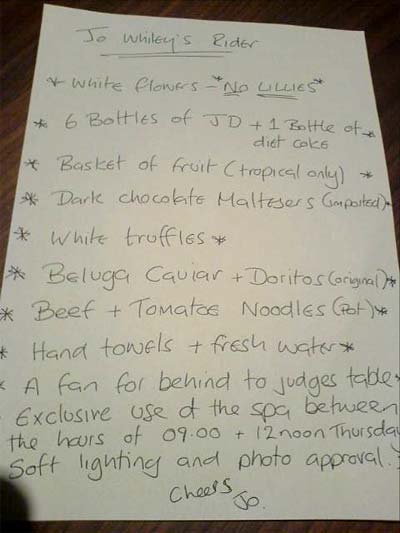 Jo Whiley's Rider
* White flowers - *No LILLIES*
* 6 Bottles of JD + 1 Bottle of *
diet coke
* Basket of fruit (tropical only) *
* Dark chocolate Maltesers (imported)*
* White truffles *
* Beluga Caviar + Doritos (original)*
* Beef + Tomatoe Noodles (Pot)*
* Hand towels + fresh water*
* A fan for behind to judges table*
Exclusive use of the spa between
the hours of 09.00 + 12noon Thursday
Soft lighting and photo approval.*
Cheers
Jo.